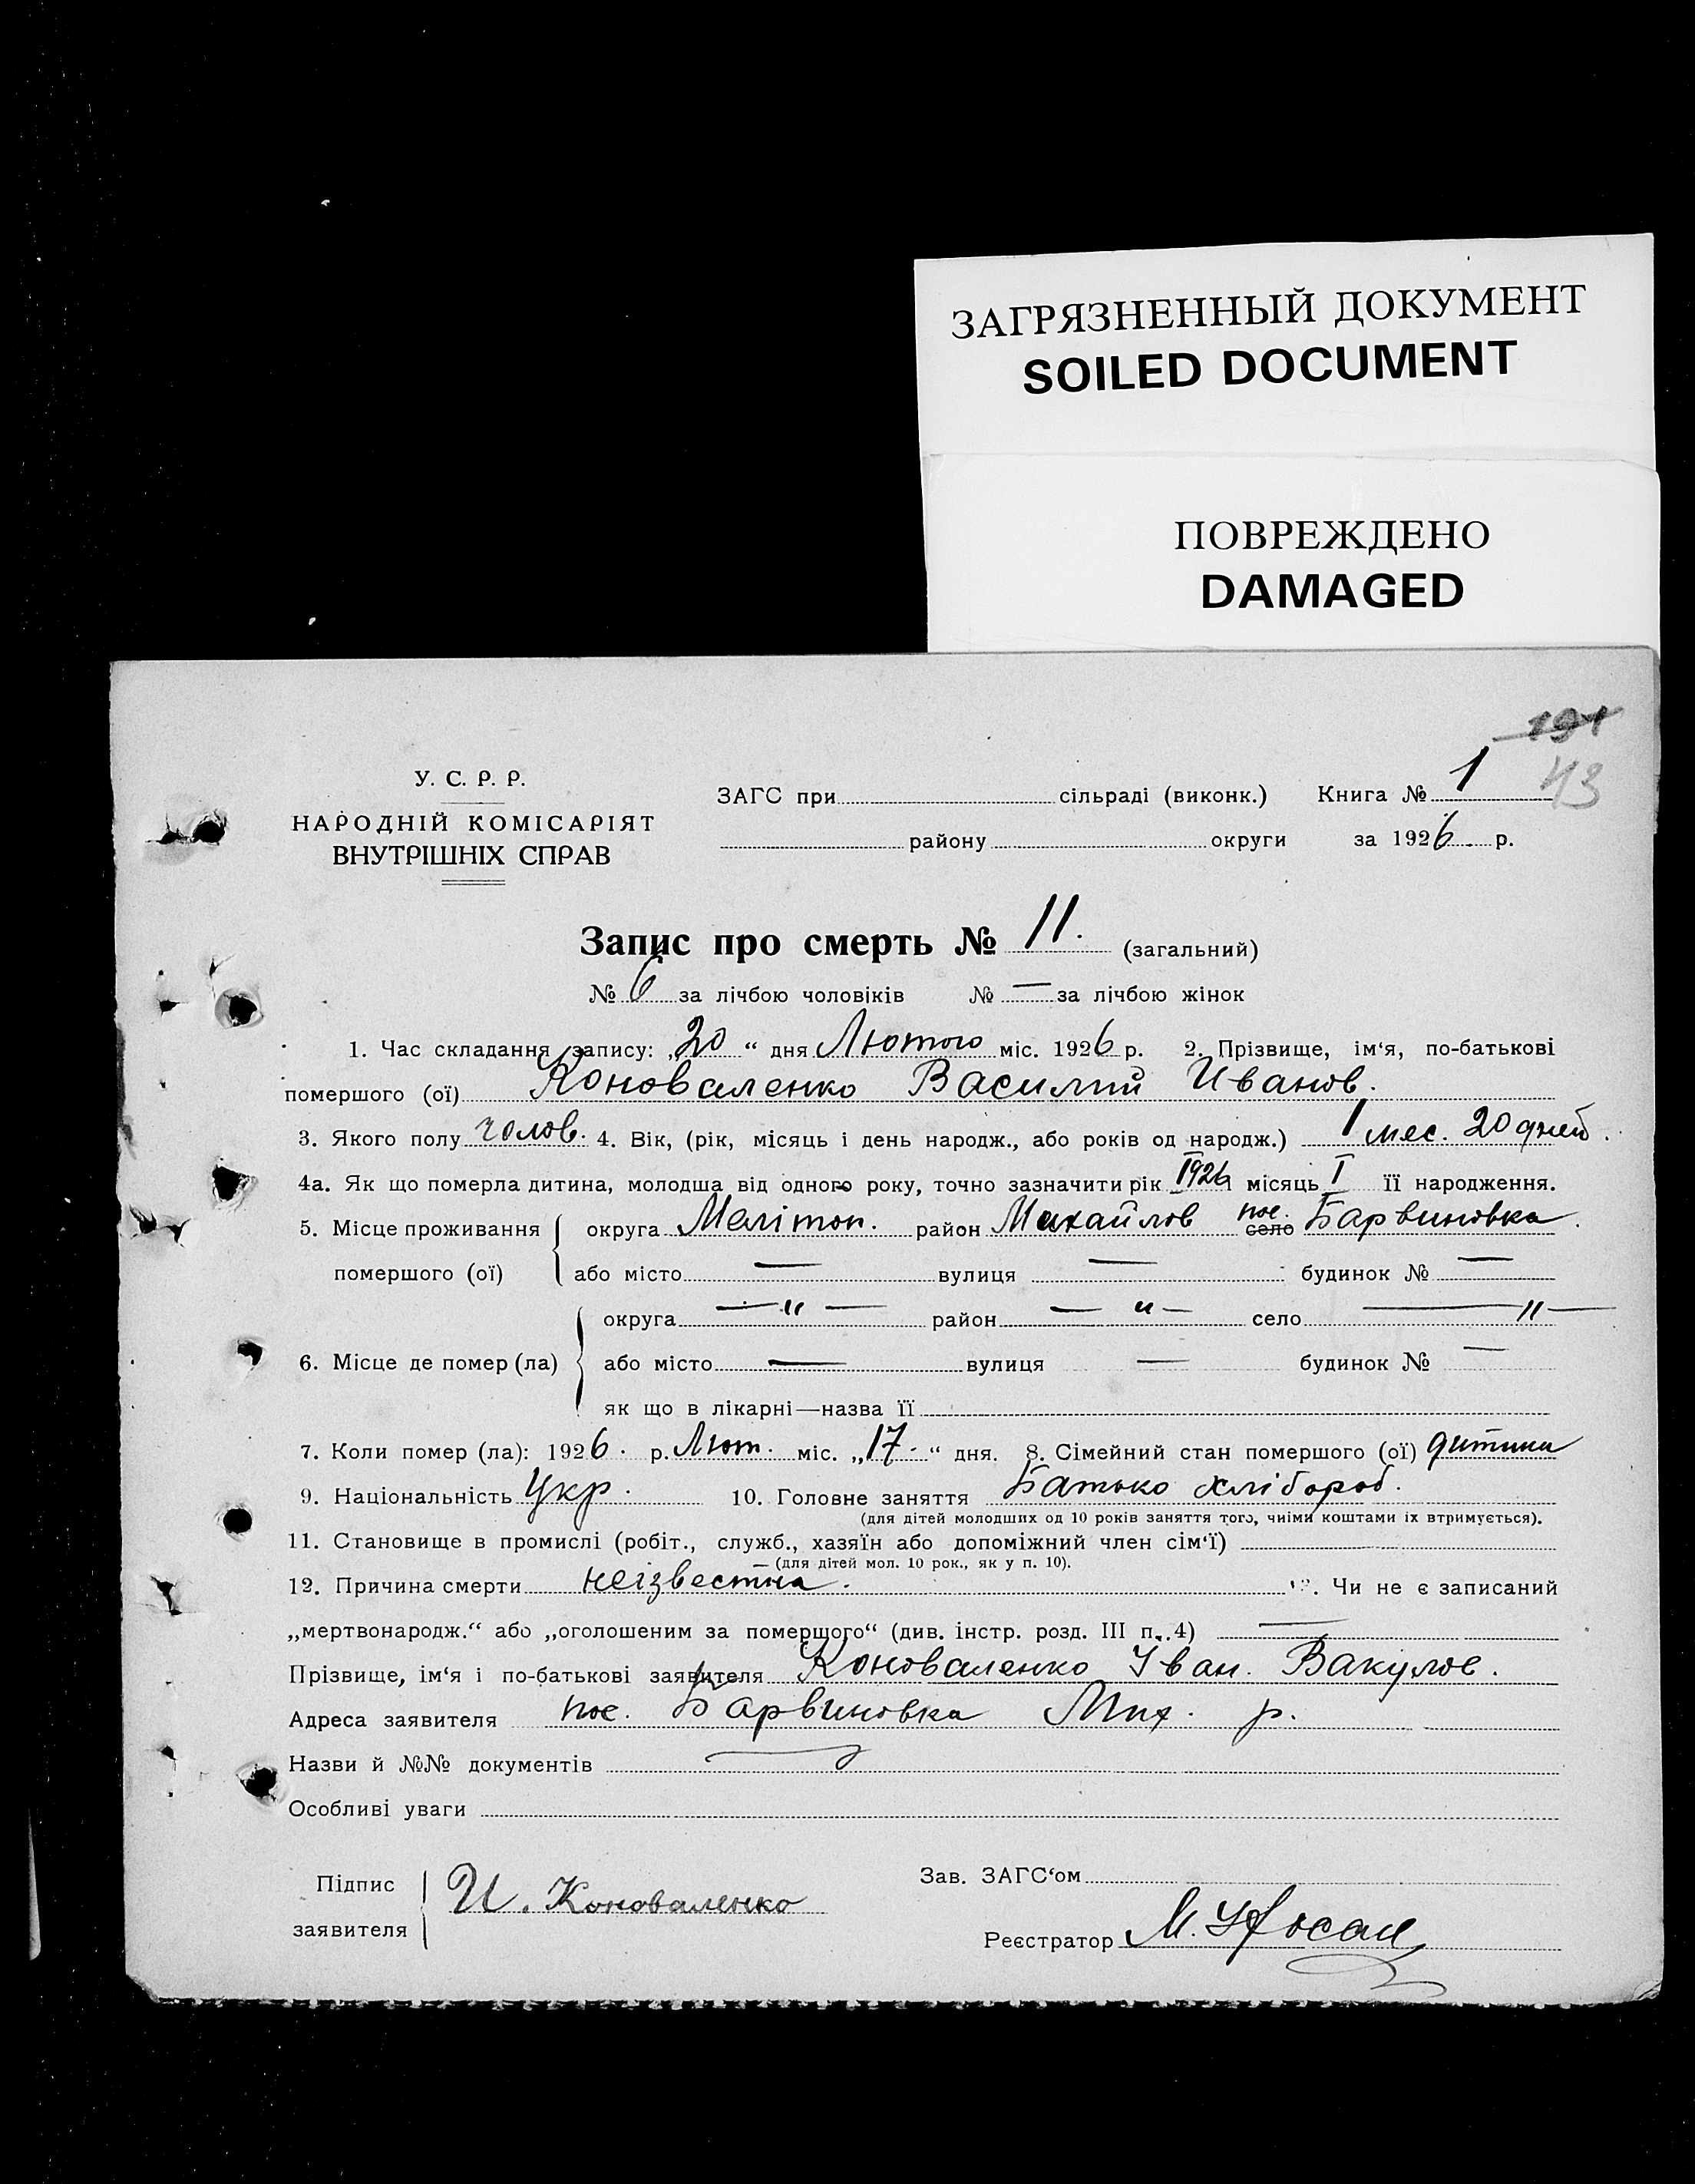 ЗАГРЯЗНЕННЫЙ ДОКУМЕНТ
SOILED DOCUMENT
ПОВРЕЖДЕНО
DAMAGED
191
43
У. С. Р. Р.
НАРОДНІЙ КОМІСАРІЯТ
ВНУТРІШНІХ СПРАВ
ЗАГС при сільраді (виконк.) Книга № 1
району округи за 1926 р.
Запис про смерть № 11. (загальний)
№ 6 за лічбою чоловіків № — за лічбою жінок
1. Час складання запису: „20“ дня Лютого міс. 1926 р. 2. Прізвище, ім‘я, по-батькові
помершого (ої) Коноваленко Василий Иванов.
3. Якого полу чолов. 4. Вік, (рік, місяць і день народж., або років од народж.) 1 мес. 20 дней.
4а. Як що померла дитина, молодша від одного року, точно зазначити рік 1926 місяць I її народження.
5. Місце проживання округа Мелітоп. район Михайлов село пос. Барвиновка.
помершого (ої) або місто — вулиця — будинок № —
округа — " — район — " — село — " —
6. Місце де помер (ла) або місто — вулиця — будинок № —
як що в лікарні—назва її
7. Коли помер (ла): 1926. р. Лют. міс. „17.“ дня. 8. Сімейний стан помершого (ої) дитина
9. Національність Укр. 10. Головне заняття Батько хлібороб.
(для дітей молодших од 10 років заняття того, чиїми коштами їх втримується).
11. Становище в промислі (робіт., служб., хазяїн або допоміжний член сім‘ї)
— (для дітей мол. 10 рок., як у п. 10).
12. Причина смерти неізвестна. 13. Чи не є записаний
„мертвонародж.“ або „оголошеним за помершого“ (див. інстр. розд. III п. 4) —
Прізвище, ім‘я і по-батькові заявителя Коноваленко Іван. Вакулов.
Адреса заявителя пос. Барвиновка Мих. р.
Назви й №№ документів —
Особливі уваги
Підпис
заявителя И. Коноваленко
Зав. ЗАГС‘ом
Реєстратор М.